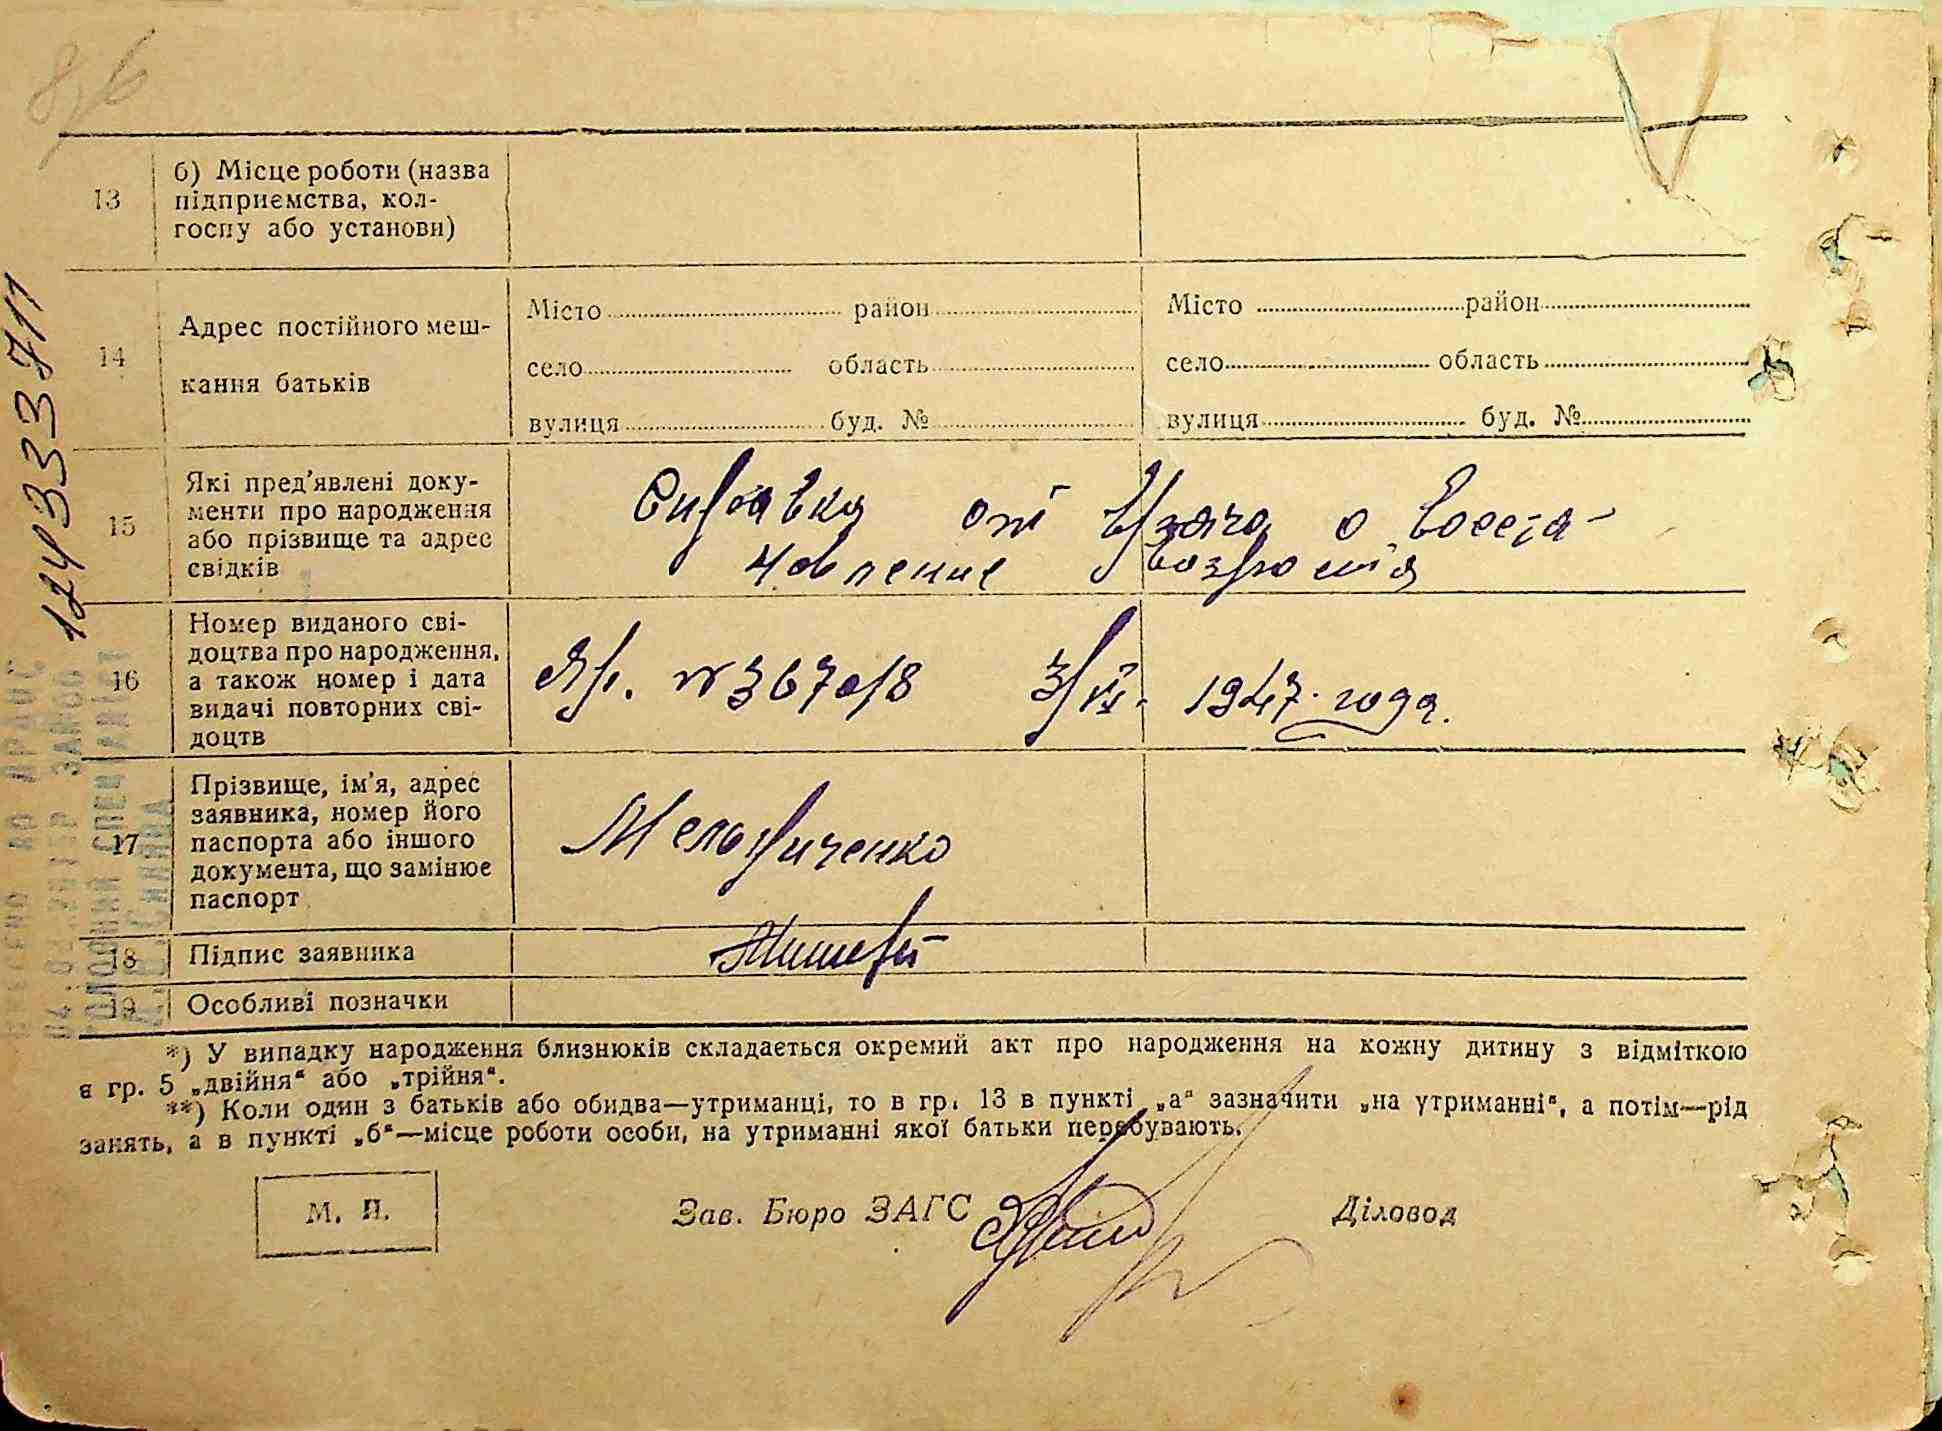 8/6
12433371
13
б) Місце роботи (назва
підприємства, кол-
госпу або установи)
14
Адрес постійного меш-
кання батьків
Місто район
село область
вулиця буд. №
Місто район
село область
вулиця буд. №
15
Які пред'явлені доку-
менти про народження
або прізвище та адрес
свідків
Справка от Врача о Воста-
новление Возроста
16
Номер виданого сві-
доцтва про народження,
а також номер і дата
видачі повторних сві-
доцтв
№ 367018 3/VI. 1947. года.
17
Прізвище, ім'я, адрес
заявника, номер його
паспорта або іншого
документа, що замінює
паспорт
Мельниченко
18
Підпис заявника
19
Особливі позначки
*) У випадку народження близнюків складається окремий акт про народження на кожну дитину з відміткою
в гр. 5 „двійня“ або „трійня“.
**) Коли один з батьків або обидва—утриманці, то в гр. 13 в пункті „а“ зазначити „на утриманні“, а потім—рід
занять, а в пункті „б“—місце роботи особи, на утриманні якої батьки перебувають.
М. П.
Зав. Бюро ЗАГС
Діловод